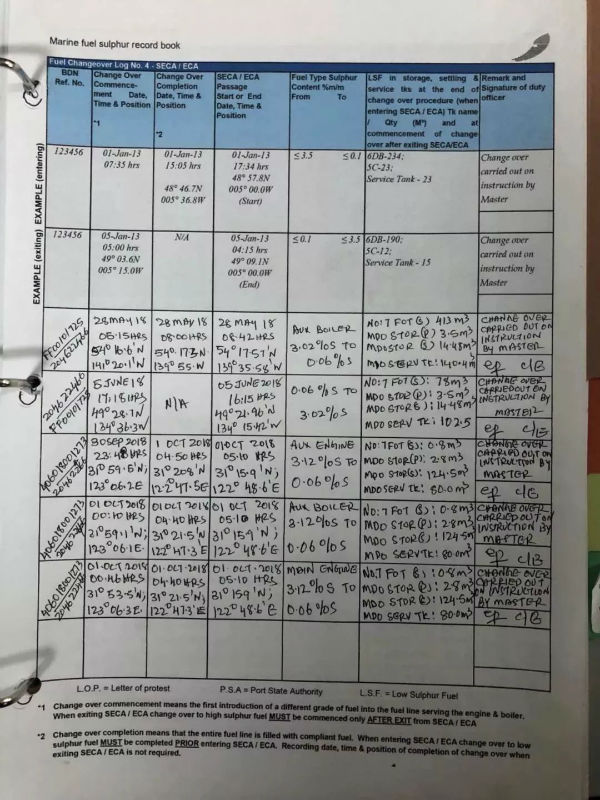 Marine fuel sulphur record book
Fuel Changeover Log No. 4 - SECA / ECA
BDN Ref. No.
Change Over Commence-ment Date, Time & Position
*1
Change Over Completion Date, Time & Position
*2
SECA / ECA Passage Start or End Date, Time & Position
Fuel Type Sulphur Content %m/m
From To
LSF in storage, settling & service tks at the end of change over procedure (when entering SECA / ECA) Tk name / Qty (M³) and at commencement of change over after exiting SECA/ECA
Remark and Signature of duty officer
EXAMPLE (entering)
123456
01-Jan-13
07:35 hrs
01-Jan-13
15:05 hrs
48° 46.7N
005° 36.8W
01-Jan-13
17:34 hrs
48° 57.8N
005° 00.0W
(Start)
≤3.5 ≤0.1
6DB-234;
5C-23;
Service Tank - 23
Change over
carried out on
instruction by
Master
EXAMPLE (exiting)
123456
05-Jan-13
05:00 hrs
49° 03.6N
005° 15.0W
N/A
05-Jan-13
04:15 hrs
49° 09.1N
005° 00.0W
(End)
≤0.1 ≤3.5
6DB-190;
5C-12;
Service Tank - 15
Change over
carried out on
instruction by
Master
28 MAY 18
05:15 HRS
54° 16.6'N
141° 20.1'W
28 MAY 18
08:00 HRS
54° 17.3'N
139° 55.W
28 MAY 18
08:42 HRS
54° 17.57'N
139° 35.58'W
AUX BOILER
3.02%S TO
0.06%S
NO:7 FOT (S) 413 m³
MDO STOR (P) 3.5m³
MDO STOR (S) 14.48m³
MDO SERV TK:
CHANGE OVER
CARRIED OUT ON
INSTRUCTION
BY MASTER
C/E
5 JUNE 18
17:18 HRS
49° 28.7N
134° 36.3W
N/A
05 JUNE 2018
16:15 HRS
49° 21.96'N
134° 15.42'W
0.06 %S TO
3.02%S
NO:7 FOT (S): 78m³
MDO STOR (P): 3.5m³
MDO STOR (S): 14.48m³
MDO SERV TK: 102.5
CHANGE OVER
CARRIED OUT ON
INSTRUCTION BY
MASTER
C/E
406018001273
30 SEP 2018
23:48 HRS
31° 59.5'N;
123° 06.2E
1 OCT 2018
04:50 HRS
31° 20.8'N
122° 47.5E
01 OCT 2018
05:10 HRS
31° 15.9'N;
122° 48.6'E
AUX ENGINE
3.12%S TO
0.06%S
NO:7 FOT (S): 0.8m³
MDO STOR(P): 2.8m³
MDO STOR(S): 124.5m³
MDO SERV TK: 80.0m³
CHANGE OVER
CARRIED OUT ON
INSTRUCTION BY
MASTER
C/E
406018001273
01 OCT 2018
00:10 HRS
31° 59.11'N;
123° 06.1E.
01 OCT 2018
04:40 HRS
31° 21.5'N
122° 47.3E
01 OCT 2018
05:10 HRS
31° 15.9'N;
122° 48.6'E
AUX BOILER
3.12%S TO
0.06%S
NO:7 FOT (S): 0.8m³
MDO STOR (P): 2.8m³
MDO STOR (S): 124.5m³
MDO SERV TK: 80.0m³
CHANGE OVER
CARRIED OUT ON
INSTRUCTION BY
MASTER
C/E
406018001273
01.OCT 2018
00:46 HRS
31° 53.5'N;
123° 06.3E.
01.OCT 2018
04:40 HRS
31° 21.5'N;
122° 47.3'E
01.OCT.2018
05:10 HRS
31° 15.9'N;
122° 48.6'E
MAIN ENGINE
3.12%S TO
0.06%S
NO.7 FOT (S): 0.8m³
MDO STOR (P): 2.8m³
MDO STOR (S): 124.5m³
MDO SERV TK: 80.0m³
CHANGE OVER
CARRIED OUT
ON INSTRUCTION
BY MASTER
C/E
L.O.P. = Letter of protest P.S.A = Port State Authority L.S.F. = Low Sulphur Fuel
*1 Change over commencement means the first introduction of a different grade of fuel into the fuel line serving the engine & boiler.
When exiting SECA / ECA change over to high sulphur fuel MUST be commenced only AFTER EXIT from SECA / ECA
*2 Change over completion means that the entire fuel line is filled with compliant fuel. When entering SECA / ECA change over to low
sulphur fuel MUST be completed PRIOR entering SECA / ECA. Recording date, time & position of completion of change over when
exiting SECA / ECA is not required.